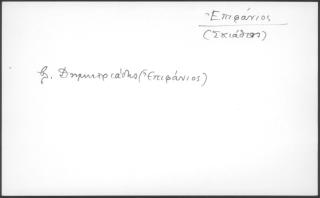 Ἐπιφάνιος
(Σκιάθου)
βλ. Δημητριάδης (Ἐπιφάνιος)